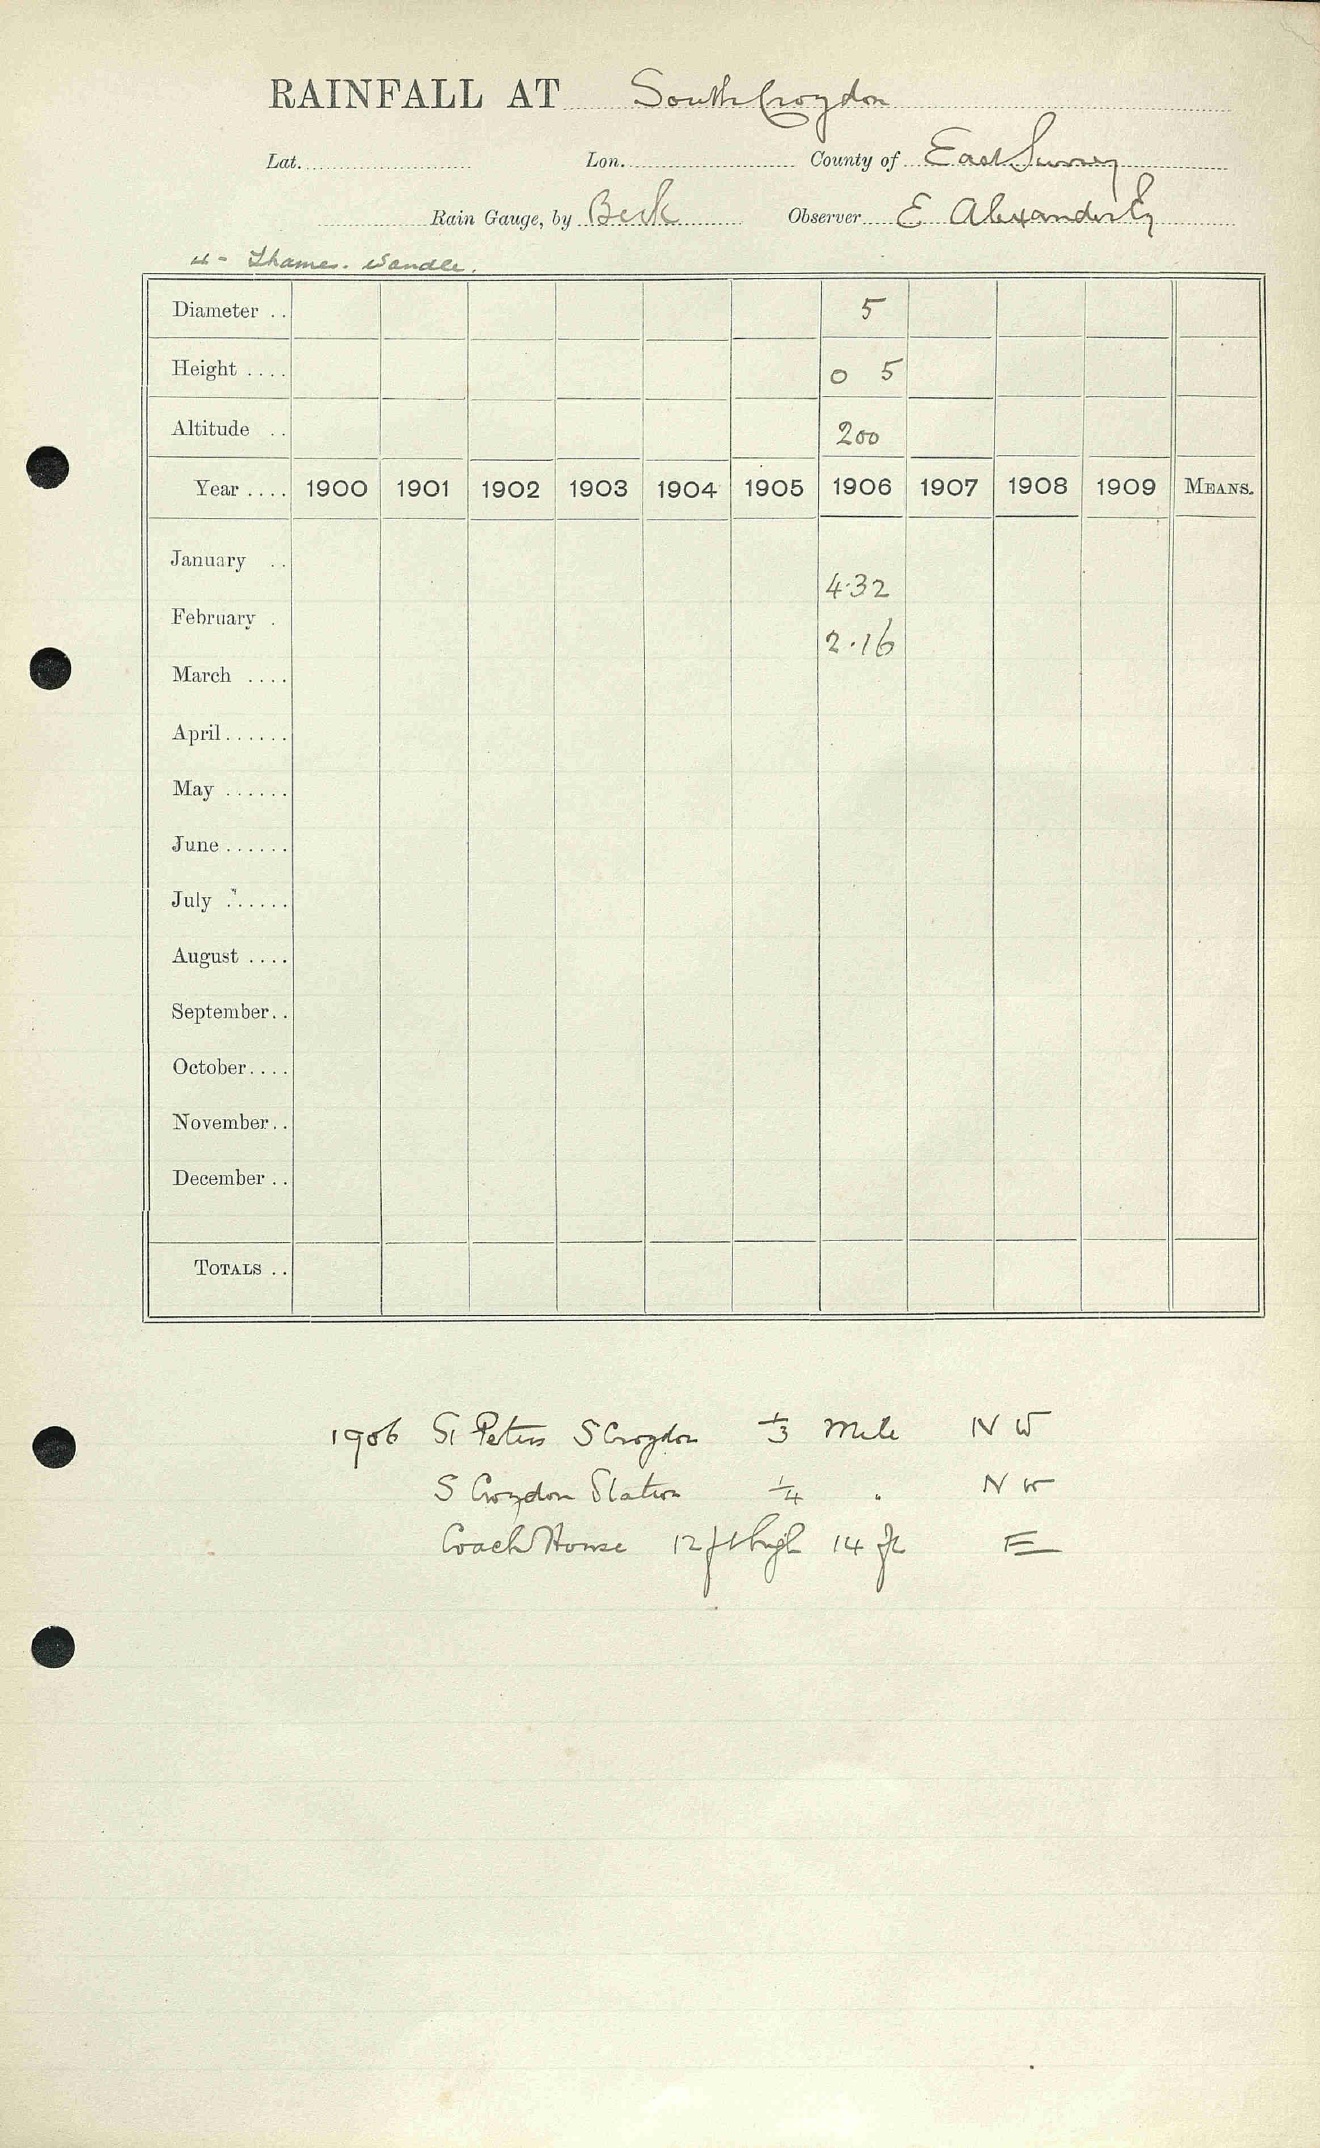 RAINFALL AT South Croydon
Lat. Lon. County of East Surrey
Rain Gauge, by Beck Observer E Alexander Esq
Thames. Wandle.
Diameter .. 5
Height .... 0 5
Altitude .. 200
Year .... 1900 1901 1902 1903 1904 1905 1906 1907 1908 1909 MEANS.
January ..
4.32
February .
2.16
March ....
April ......
May ......
June ......
July ......
August ....
September..
October....
November..
December ..
TOTALS ..
1906 St Peters S Croydon 1/3 Mile N W
S Croydon Station 1/4 " N W
Coach House 12 ft high 14 ft E